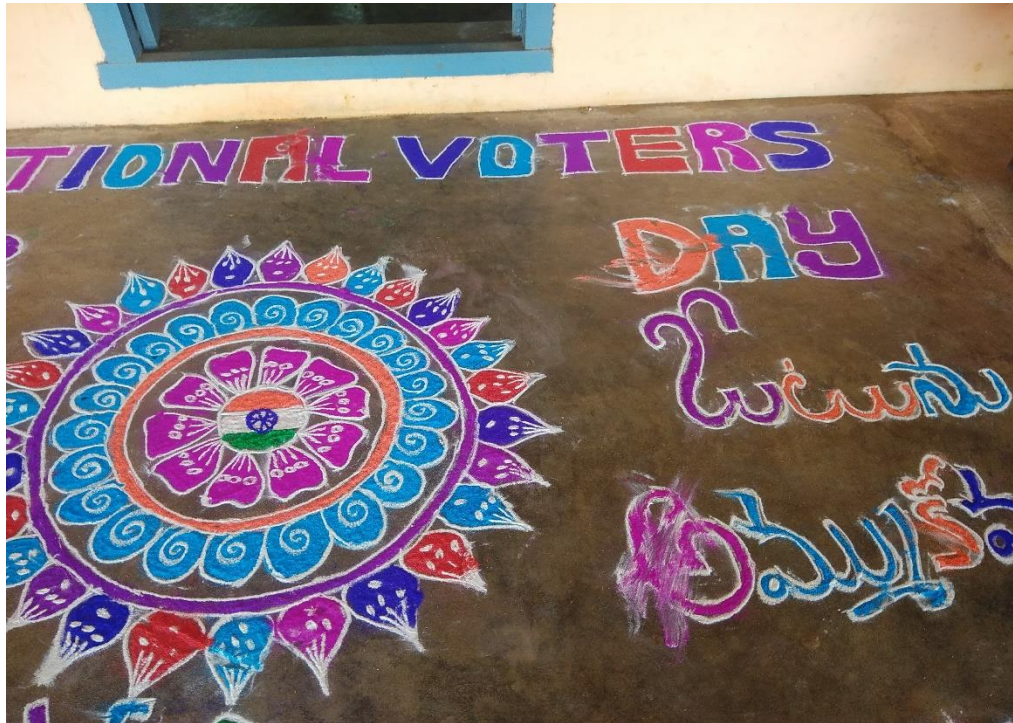 TIONAL VOTERS
DAY
ఓటును
అమ్ముకోవ